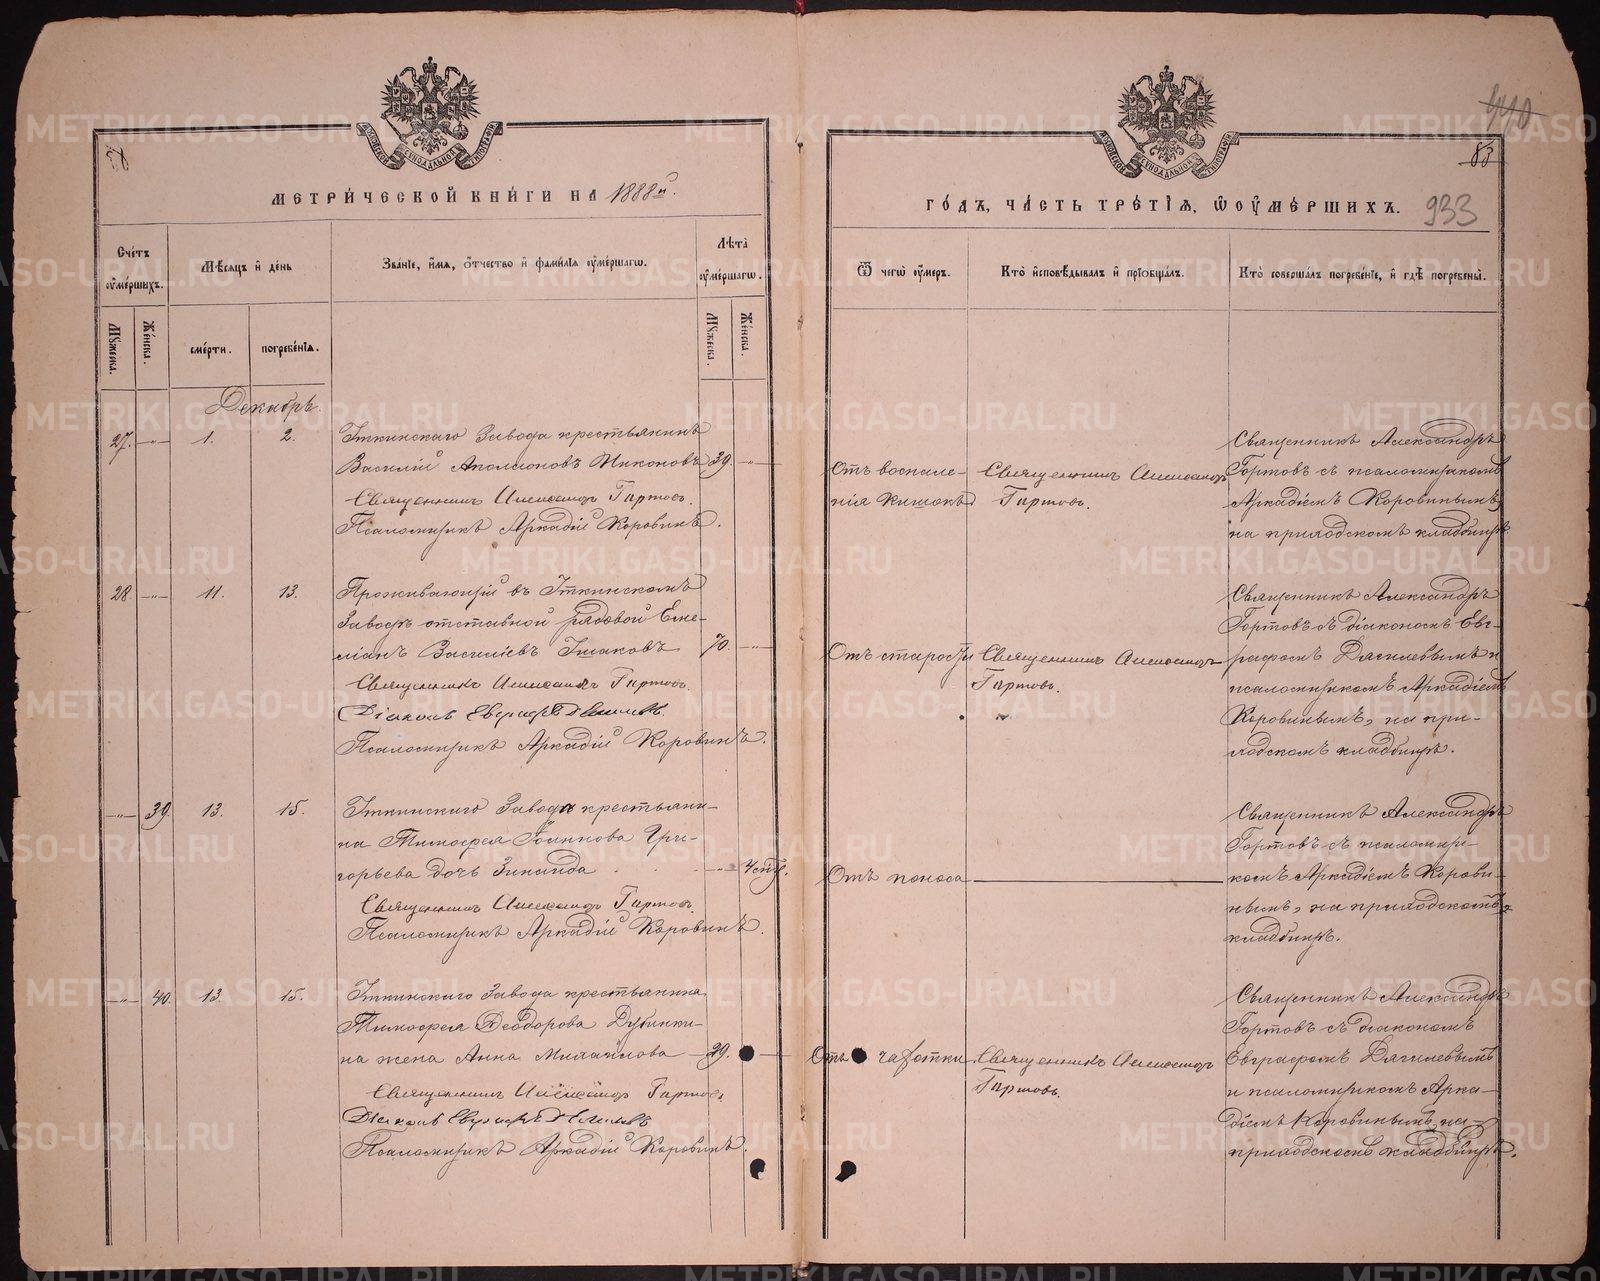 МЕТРИЧЕСКОЙ КНИГИ НА 1888й.
Счетъ оумершихъ.
Мѣсяцъ и день
Званіе, имя, отчество и фамилія оумершагѡ.
Лѣта оумершагѡ.
Мужеска.
Женска.
смерти.
погребенія.
Мужеска.
Женска.
Декабрь.
27. —„— 1. 2. Иткинскаго Завода крестьянинъ
Василій Аполлоновъ Никоновъ 39. —„—
Священникъ Александръ Гортовъ.
Псаломщикъ Аркадій Коровинъ.
28 —„— 11. 13. Проживающій въ Иткинскомъ
Заводѣ отставной рядовой Еме-
ліанъ Василіевъ 70. —„—
Священникъ Александръ Гортовъ.
Діаконъ Евграфъ
Псаломщикъ Аркадій Коровинъ.
—„— 39. 13. 15. Иткинскаго Завода крестьяни-
на Тимофея Гри-
горьева дочь Зинаида —„—
Священникъ Александръ Гортовъ.
Псаломщикъ Аркадій Коровинъ.
—„— 40. 13. 15. Иткинскаго Завода крестьянина
Тимофея Ѳеодорова Дубинки-
на жена Анна Михайлова 39.
Священникъ Александръ Гортовъ.
Діаконъ Евграфъ
Псаломщикъ Аркадій Коровинъ.
440
83
ГОДЪ, ЧАСТЬ ТРЕТІЯ, Ѡ ОУМЕРШИХЪ. 933
Ѿ чегѡ оумеръ.
Кто исповѣдывалъ и пріобщалъ.
Кто совершалъ погребеніе, и гдѣ погребены.
Отъ воспале-
нія кишокъ
Священникъ Александръ
Гортовъ.
Священникъ Александръ
Гортовъ съ псаломщикомъ
Аркадіемъ Коровинымъ,
на приходскомъ кладбищѣ.
Отъ старости
Священникъ Александръ
Гортовъ.
Священникъ Александръ
Гортовъ съ діакономъ Евг-
рафомъ Дягилевымъ и
псаломщикомъ Аркадіемъ
Коровинымъ, на при-
ходскомъ кладбищѣ.
Отъ поноса
Священникъ Александръ
Гортовъ съ псаломщи-
комъ Аркадіемъ Корови-
нымъ, на приходскомъ
кладбищѣ.
Отъ чахотки
Священникъ Александръ
Гортовъ.
Священникъ Александръ
Гортовъ съ діакономъ
Евграфомъ Дягилевымъ
и псаломщикомъ Арка-
діемъ Коровинымъ, на
приходскомъ кладбищѣ.
METRIKI.GASO-URAL.RU